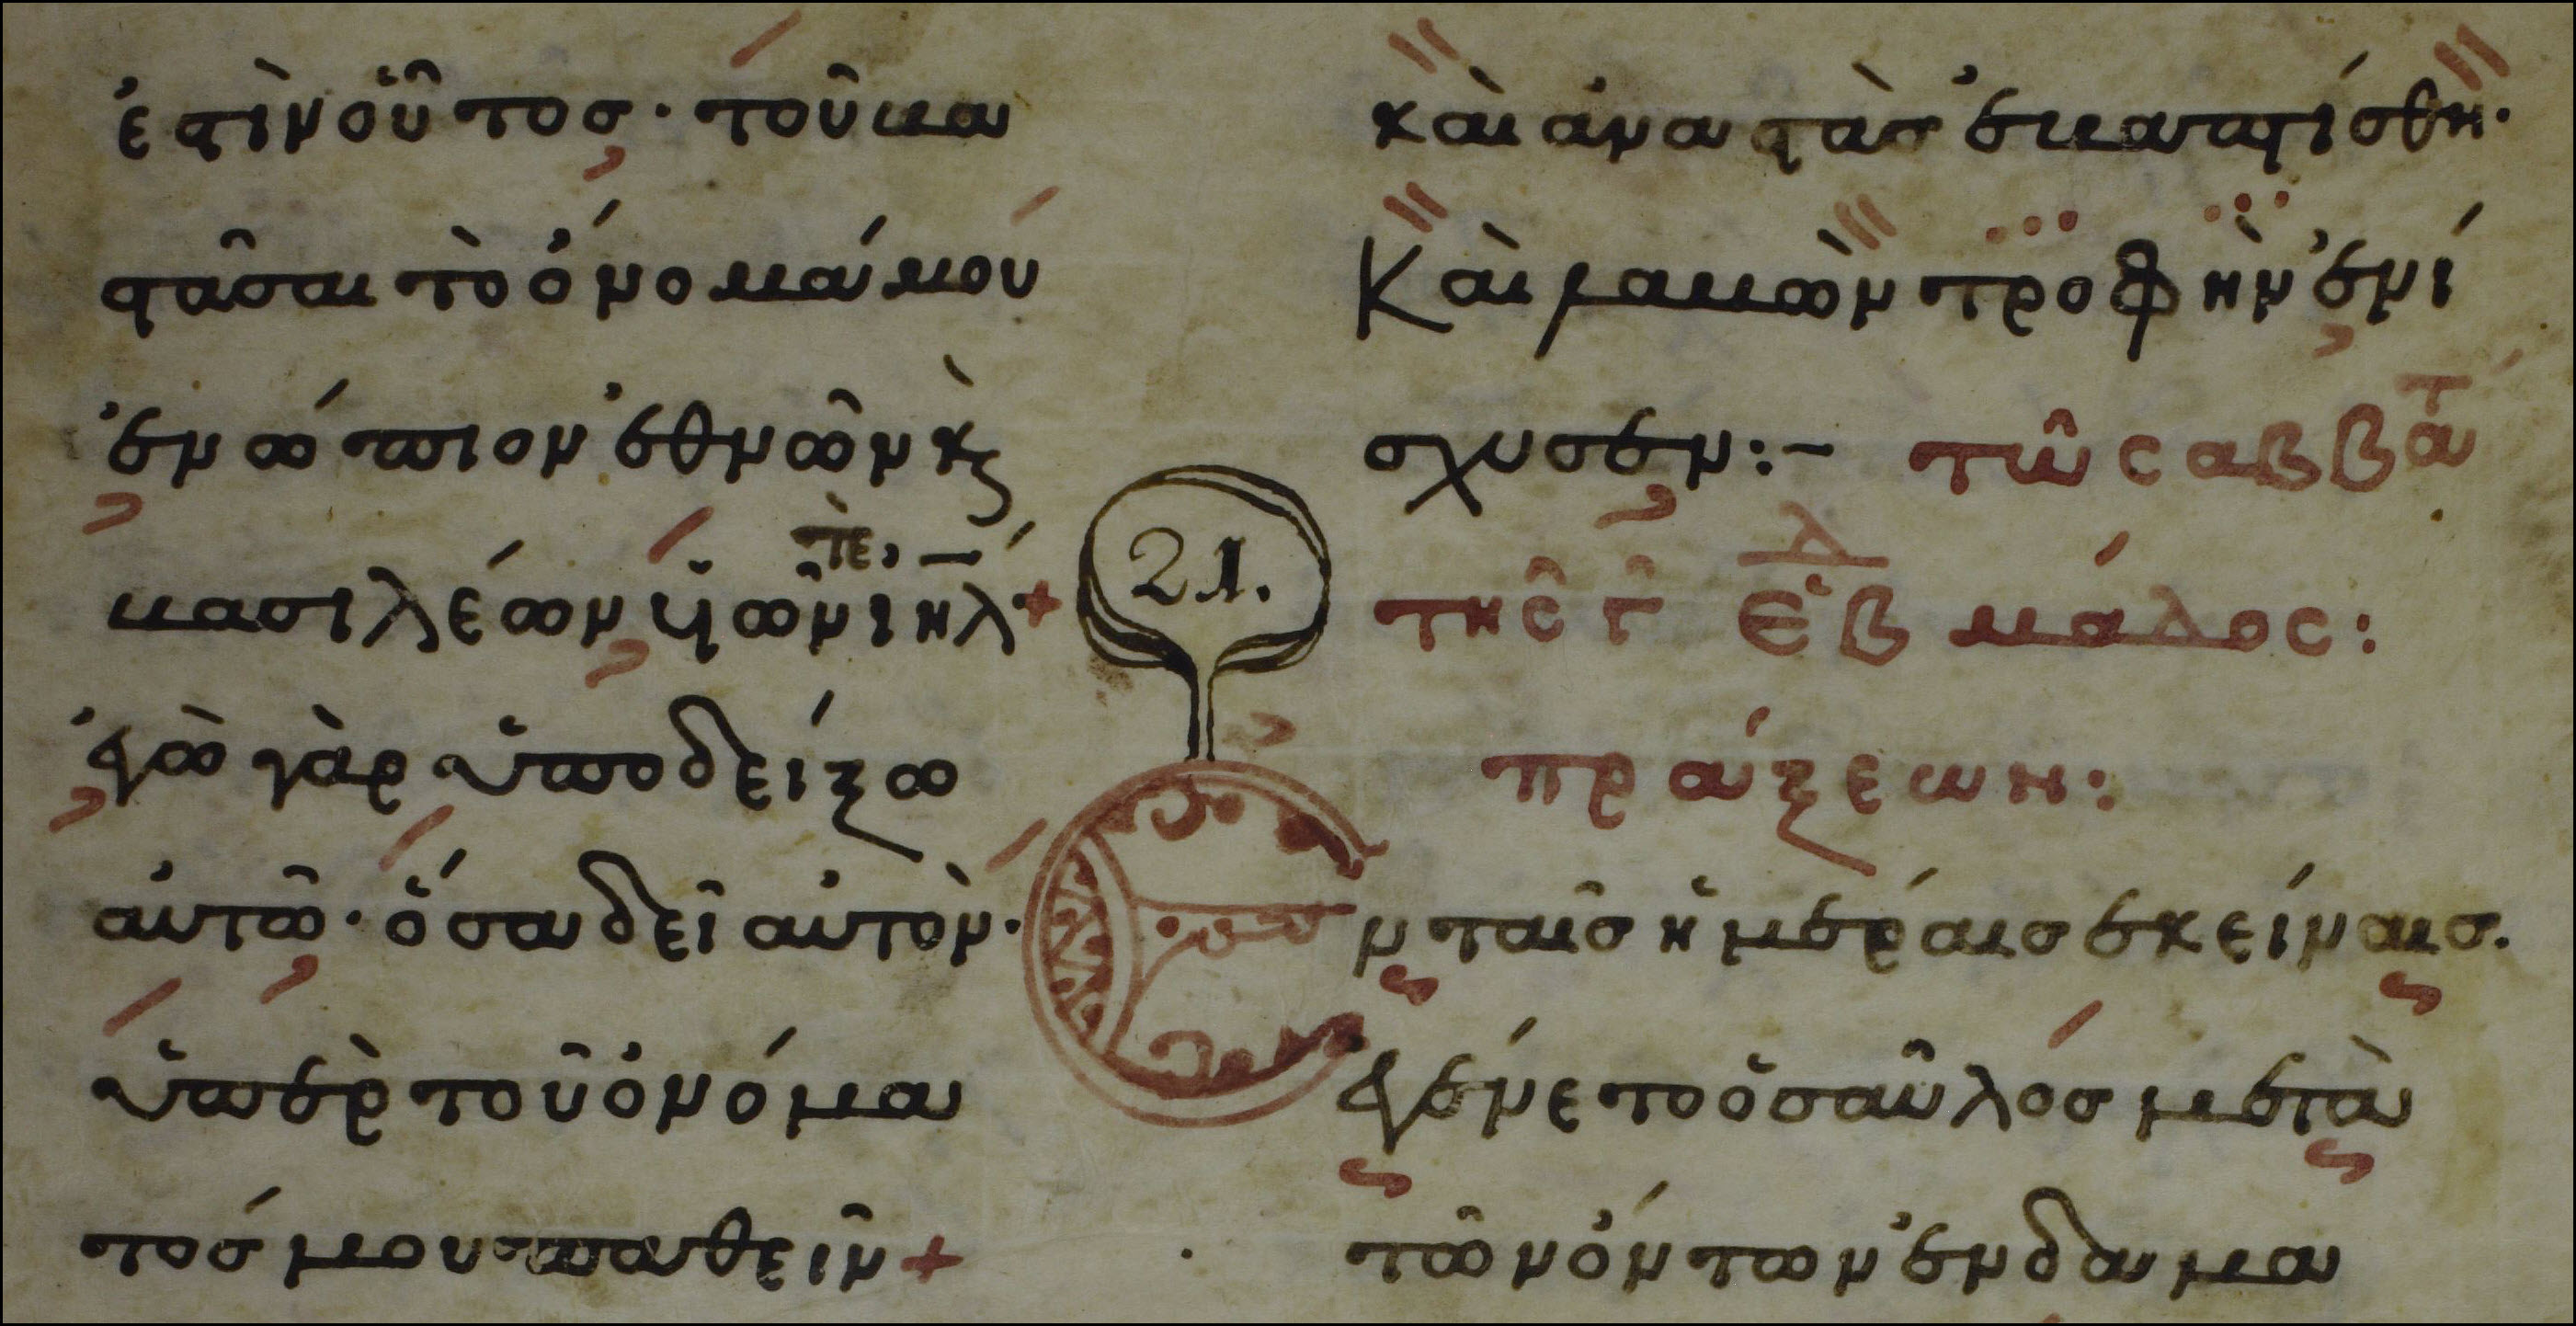 ἐστὶν οὗτος· τοῦ βα
στᾶσαι τὸ ὄνομά μου
ἐνώπιον ἐθνῶν κς
τὲ, –
βασιλέων ϋἱῶν ιηλ +
ἐγὼ γὰρ ὑποδείξω
αὐτῶ· ὅσα δεῖ αὐτὸν·
ὑπὲρ τοῦ ὀνόμα
τός μου παθεῖν +
καὶ ἀναστὰς ἐβαπτίσθη·
Καὶ λαβὼν τροφὴν ἐνί
σχυσεν :– τῶ σαββάτ
τῆς γ ἑβδμάδος :
πράξεων :
21.
Ἐν ταῖς ἡμέραις ἐκείναις.
ἐγένετο ὁ σαῦλος μετὰ
τῶν ὄντων ἐν δαμα